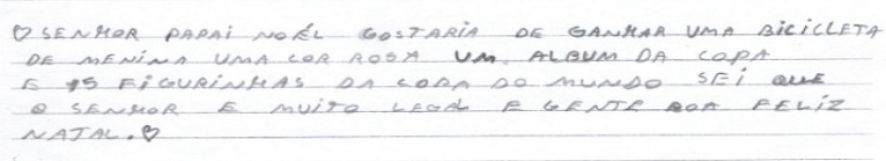 ♡ SENHOR PAPAI NOÉL GOSTARIA DE GANHAR UMA BICICLETA
DE MENINA UMA COR ROSA UM ALBUM DA COPA
E 15 FIGURINHAS DA COPA DO MUNDO SEI QUE
O SENHOR E MUITO LEGAL E GENTE BOA FELIZ
NATAL. ♡